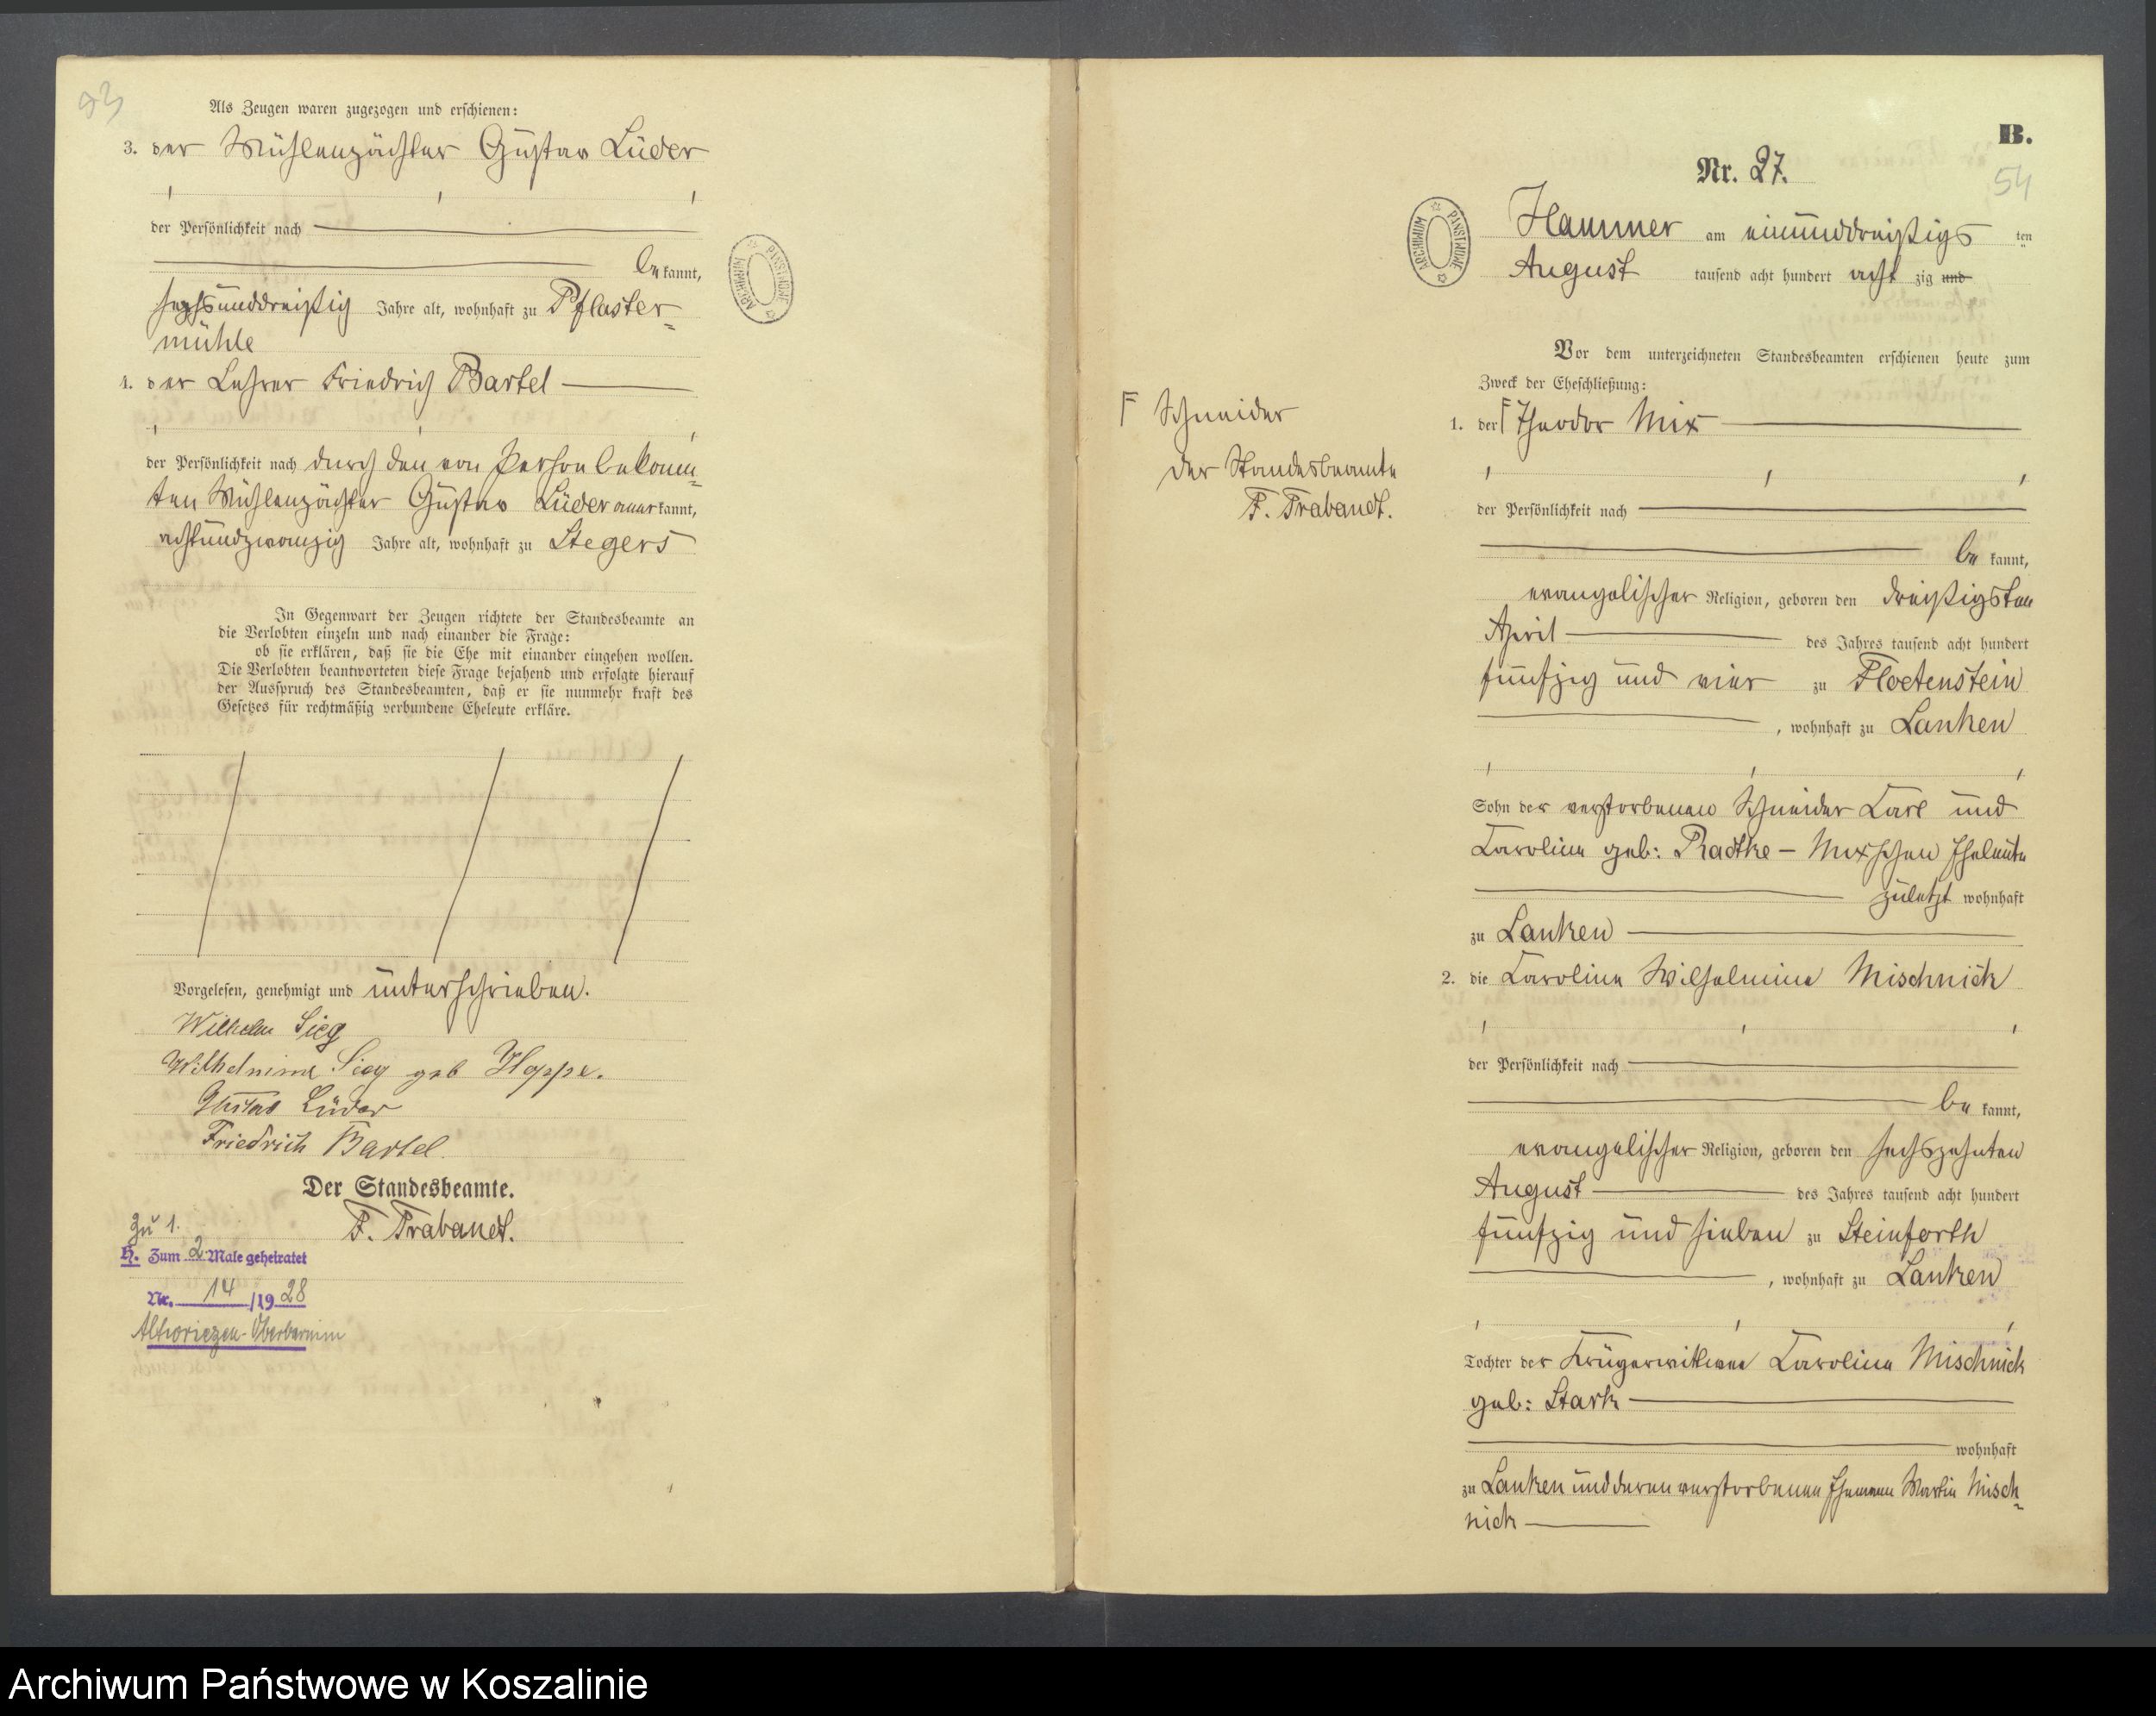 93
Als Zeugen waren zugezogen und erschienen:
3. der Mühlenpächter Gustav Lüder
der Persönlichkeit nach
be kannt,
sechsunddreißig Jahre alt, wohnhaft zu Pflaster-
mühle
4. der Lehrer Friedrich Bartel
der Persönlichkeit nach durch den von Person bekann-
ten Mühlenpächter Gustav Lüder anerkannt,
achtundzwanzig Jahre alt, wohnhaft zu Stegers
In Gegenwart der Zeugen richtete der Standesbeamte an
die Verlobten einzeln und nach einander die Frage:
ob sie erklären, daß sie die Ehe mit einander eingehen wollen.
Die Verlobten beantworteten diese Frage bejahend und erfolgte hierauf
der Ausspruch des Standesbeamten, daß er sie nunmehr kraft des
Gesetzes für rechtmäßig verbundene Eheleute erkläre.
Vorgelesen, genehmigt und unterschrieben.
Wilhelm Sieg
Wilhelmine Sieg geb Hoppe.
Gustav Lüder
Friedrich Bartel.
Der Standesbeamte.
F. Trabandt.
Zu 1.
H. Zum 2 Male geheiratet
Nr. 14 /19 28
Altwriezen-Oberbarnim
ARCHIWUM PAŃSTWOWE
B.
Nr. 27.
54
ARCHIWUM PAŃSTWOWE
Hammer am einunddreißigs ten
August tausend acht hundert acht zig und
Vor dem unterzeichneten Standesbeamten erschienen heute zum
Zweck der Eheschließung:
F Schneider
der Standesbeamte
F. Trabandt.
1. der F Theodor Mix
der Persönlichkeit nach
be kannt,
evangelischer Religion, geboren den dreißigsten
April des Jahres tausend acht hundert
fünfzig und vier zu Floetenstein
, wohnhaft zu Lanken
Sohn der verstorbenen Schneider Carl und
Caroline geb: Radtke - Mixschen Eheleute
zuletzt wohnhaft
zu Lanken
2. die Caroline Wilhelmine Mischnick
der Persönlichkeit nach
be kannt,
evangelischer Religion, geboren den sechszehnten
August des Jahres tausend acht hundert
fünfzig und sieben zu Steinforth
, wohnhaft zu Lanken
Tochter der Krügerwittwe Caroline Mischnick
geb: Stark
wohnhaft
zu Lanken und deren verstorbenen Ehemann Martin Misch-
nick
Archiwum Państwowe w Koszalinie